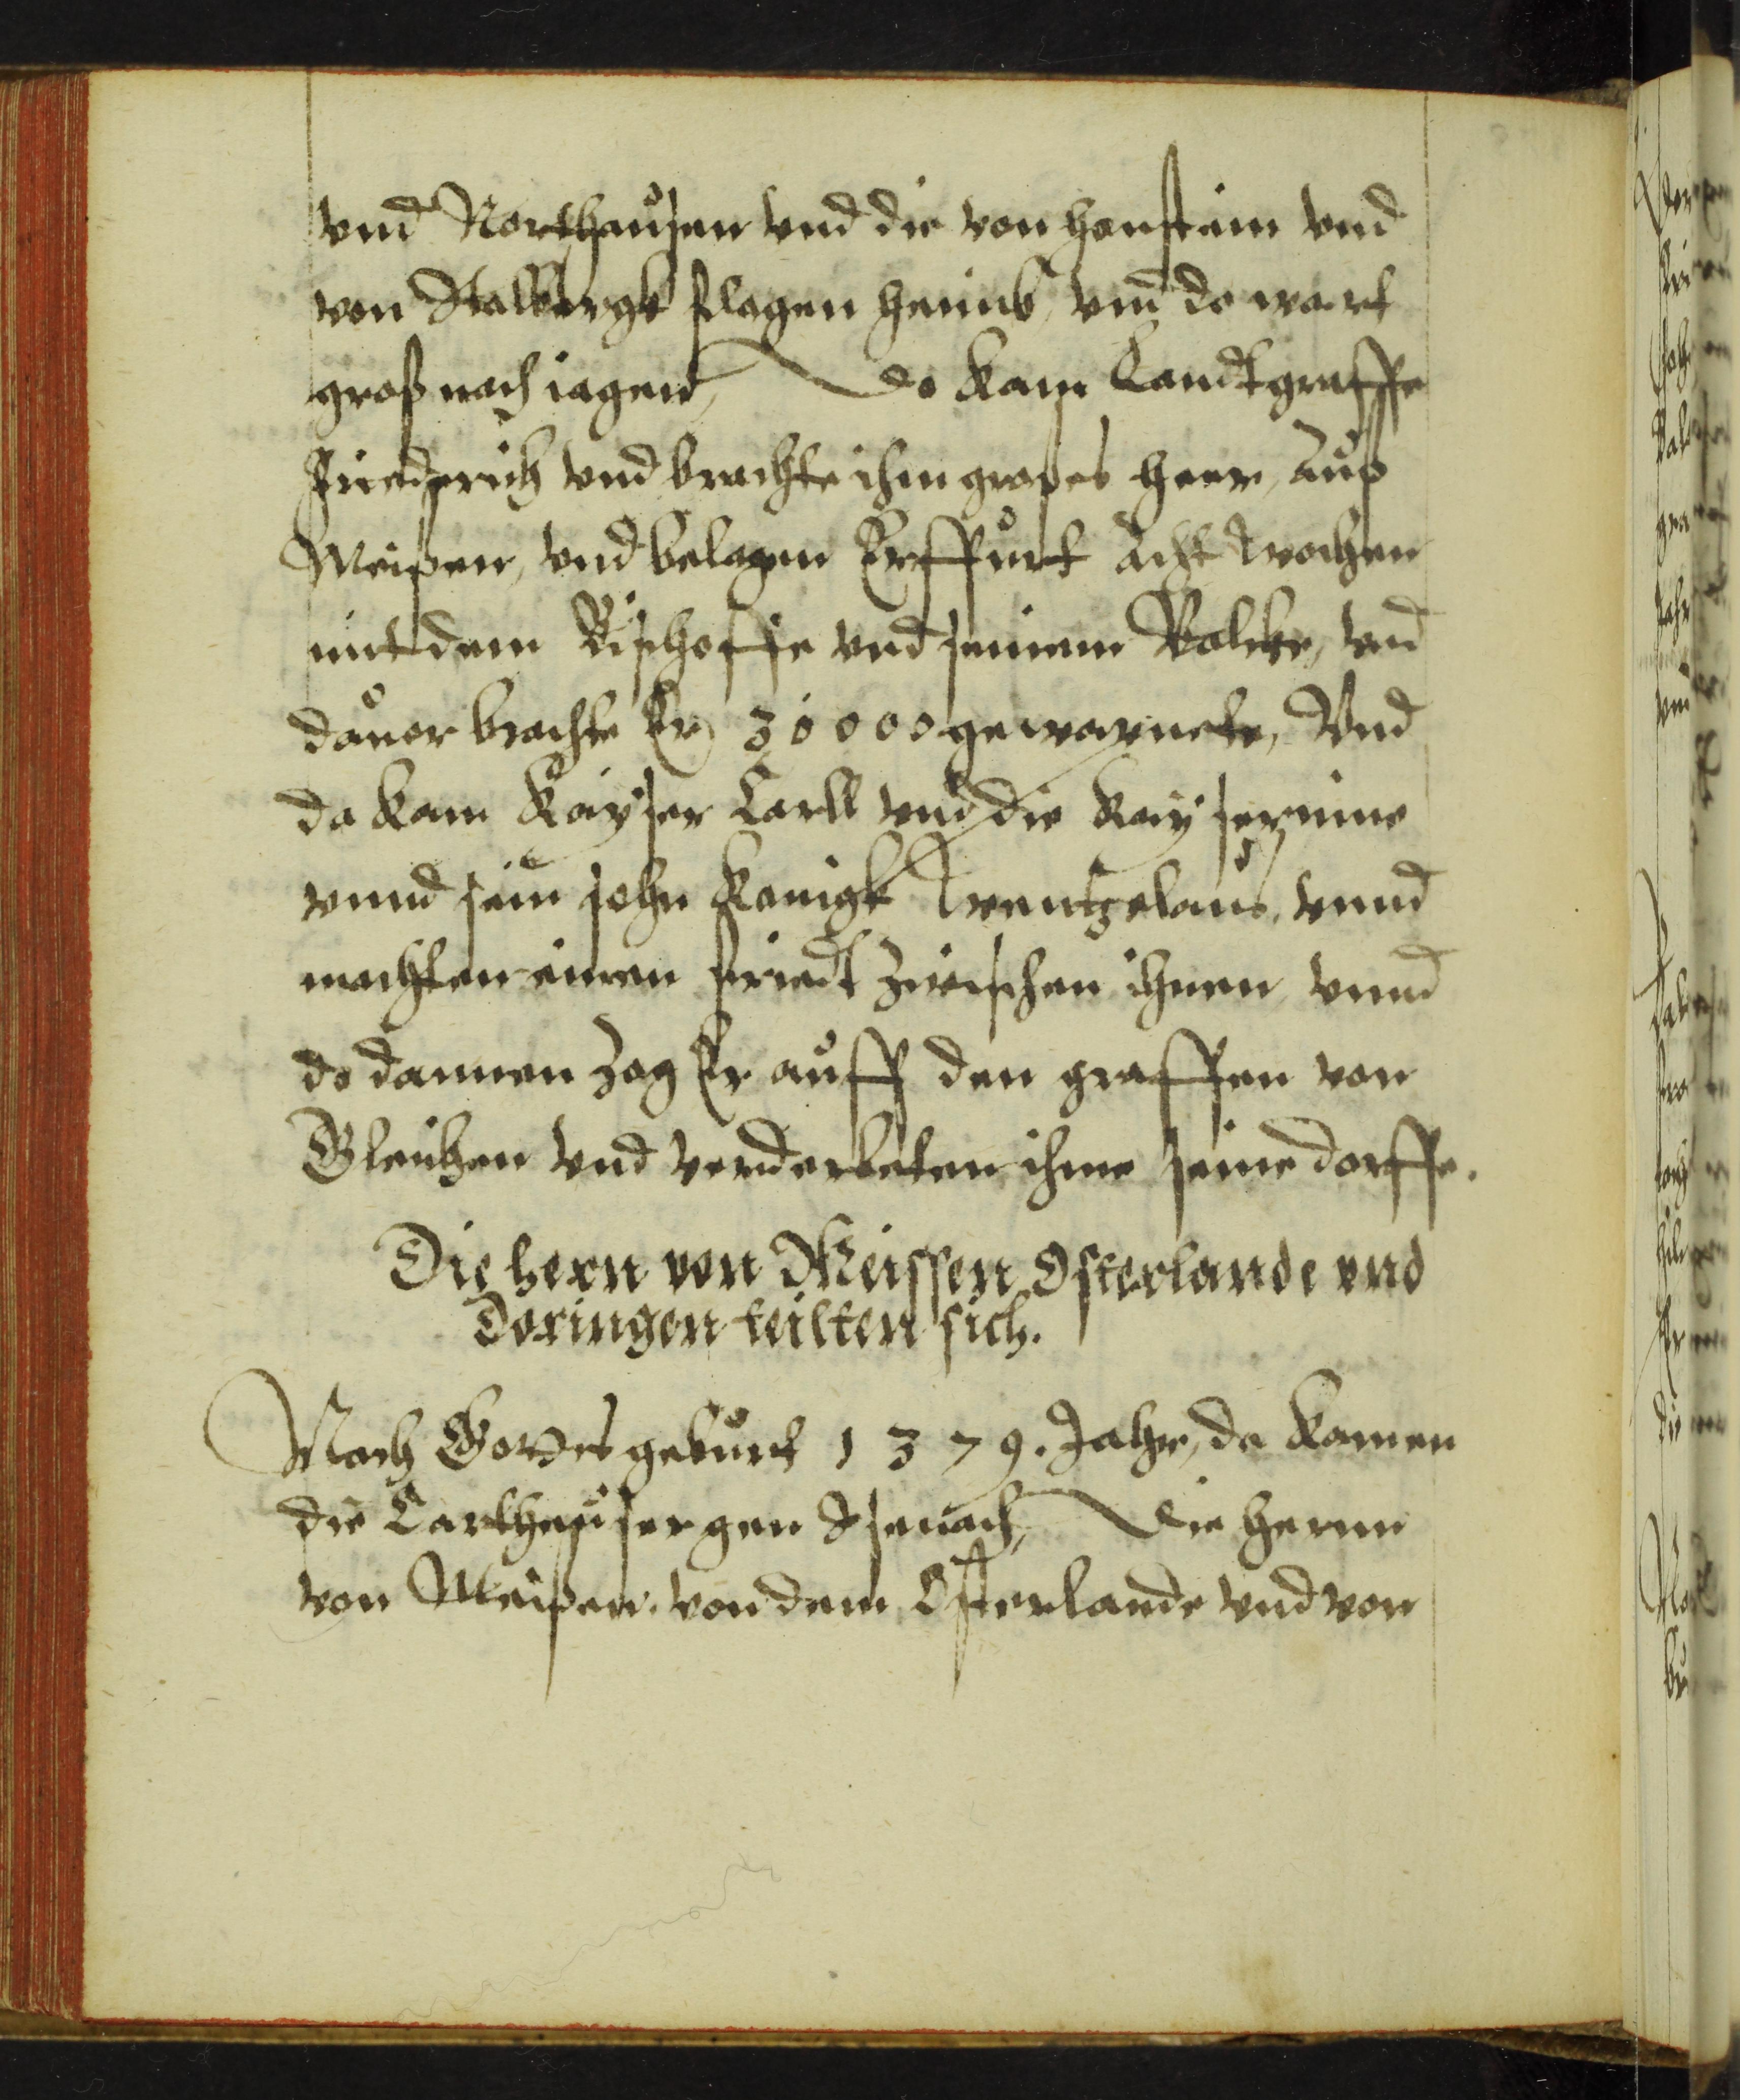 vnd Northausen vnd die von Hanstein vnd
von Stalbergk flogen heimb, vnd do wart
groß nach iagen, Do kam Landtgraffe
Friederich vnd brachte ihm groses heer, auß
Meißen, vnd belagen Erffurt acht Wochen
mit dem Bischoffe vnd seinem Volcke, vnd
dauor brachte Er 30000 gewapnete, Vnd
da kam Kayser Carll vnd die Kayserinne
vnnd sein sohn Konigk Wentzelaus, vnnd
machten einen friedt zwischen ihnen vnnd
do dannen zog Er auff den graffen von
Gleichen vnd verderbeten ihme seine dorffe.
Die hern von Meissen Osterlande vnd
Doringen teilten sich.
Nach Gottes geburt 1379. Jahr, da kamen
die Cartheuser gen Isenach, Die herrn
von Meißen. von dem Osterlande vnd von